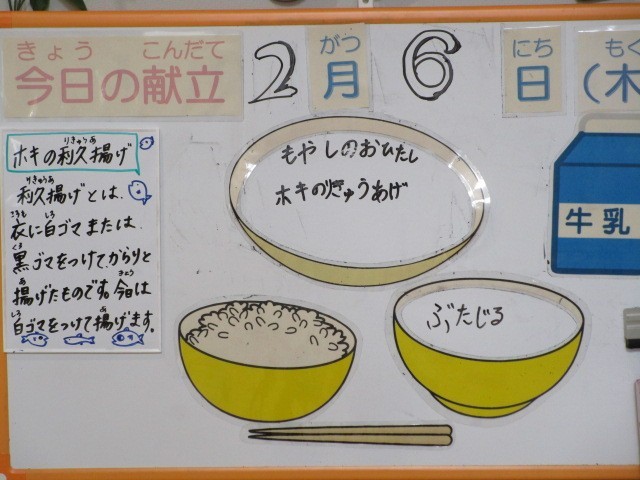 きょう こんだて がつ にち もく
今日の献立 2月6日(木
ホキの利久揚げ
りきゅうあ
利久揚げとは、
りきゅうあ
衣に白ゴマまたは、
ころも しろ
黒ゴマをつけて、からりと
くろ
揚げたものです。今日は
あ きょう
白ゴマをつけて揚げます。
しろ あ
もやしのおひたし
ホキのりきゅうあげ
ぶたじる
牛乳